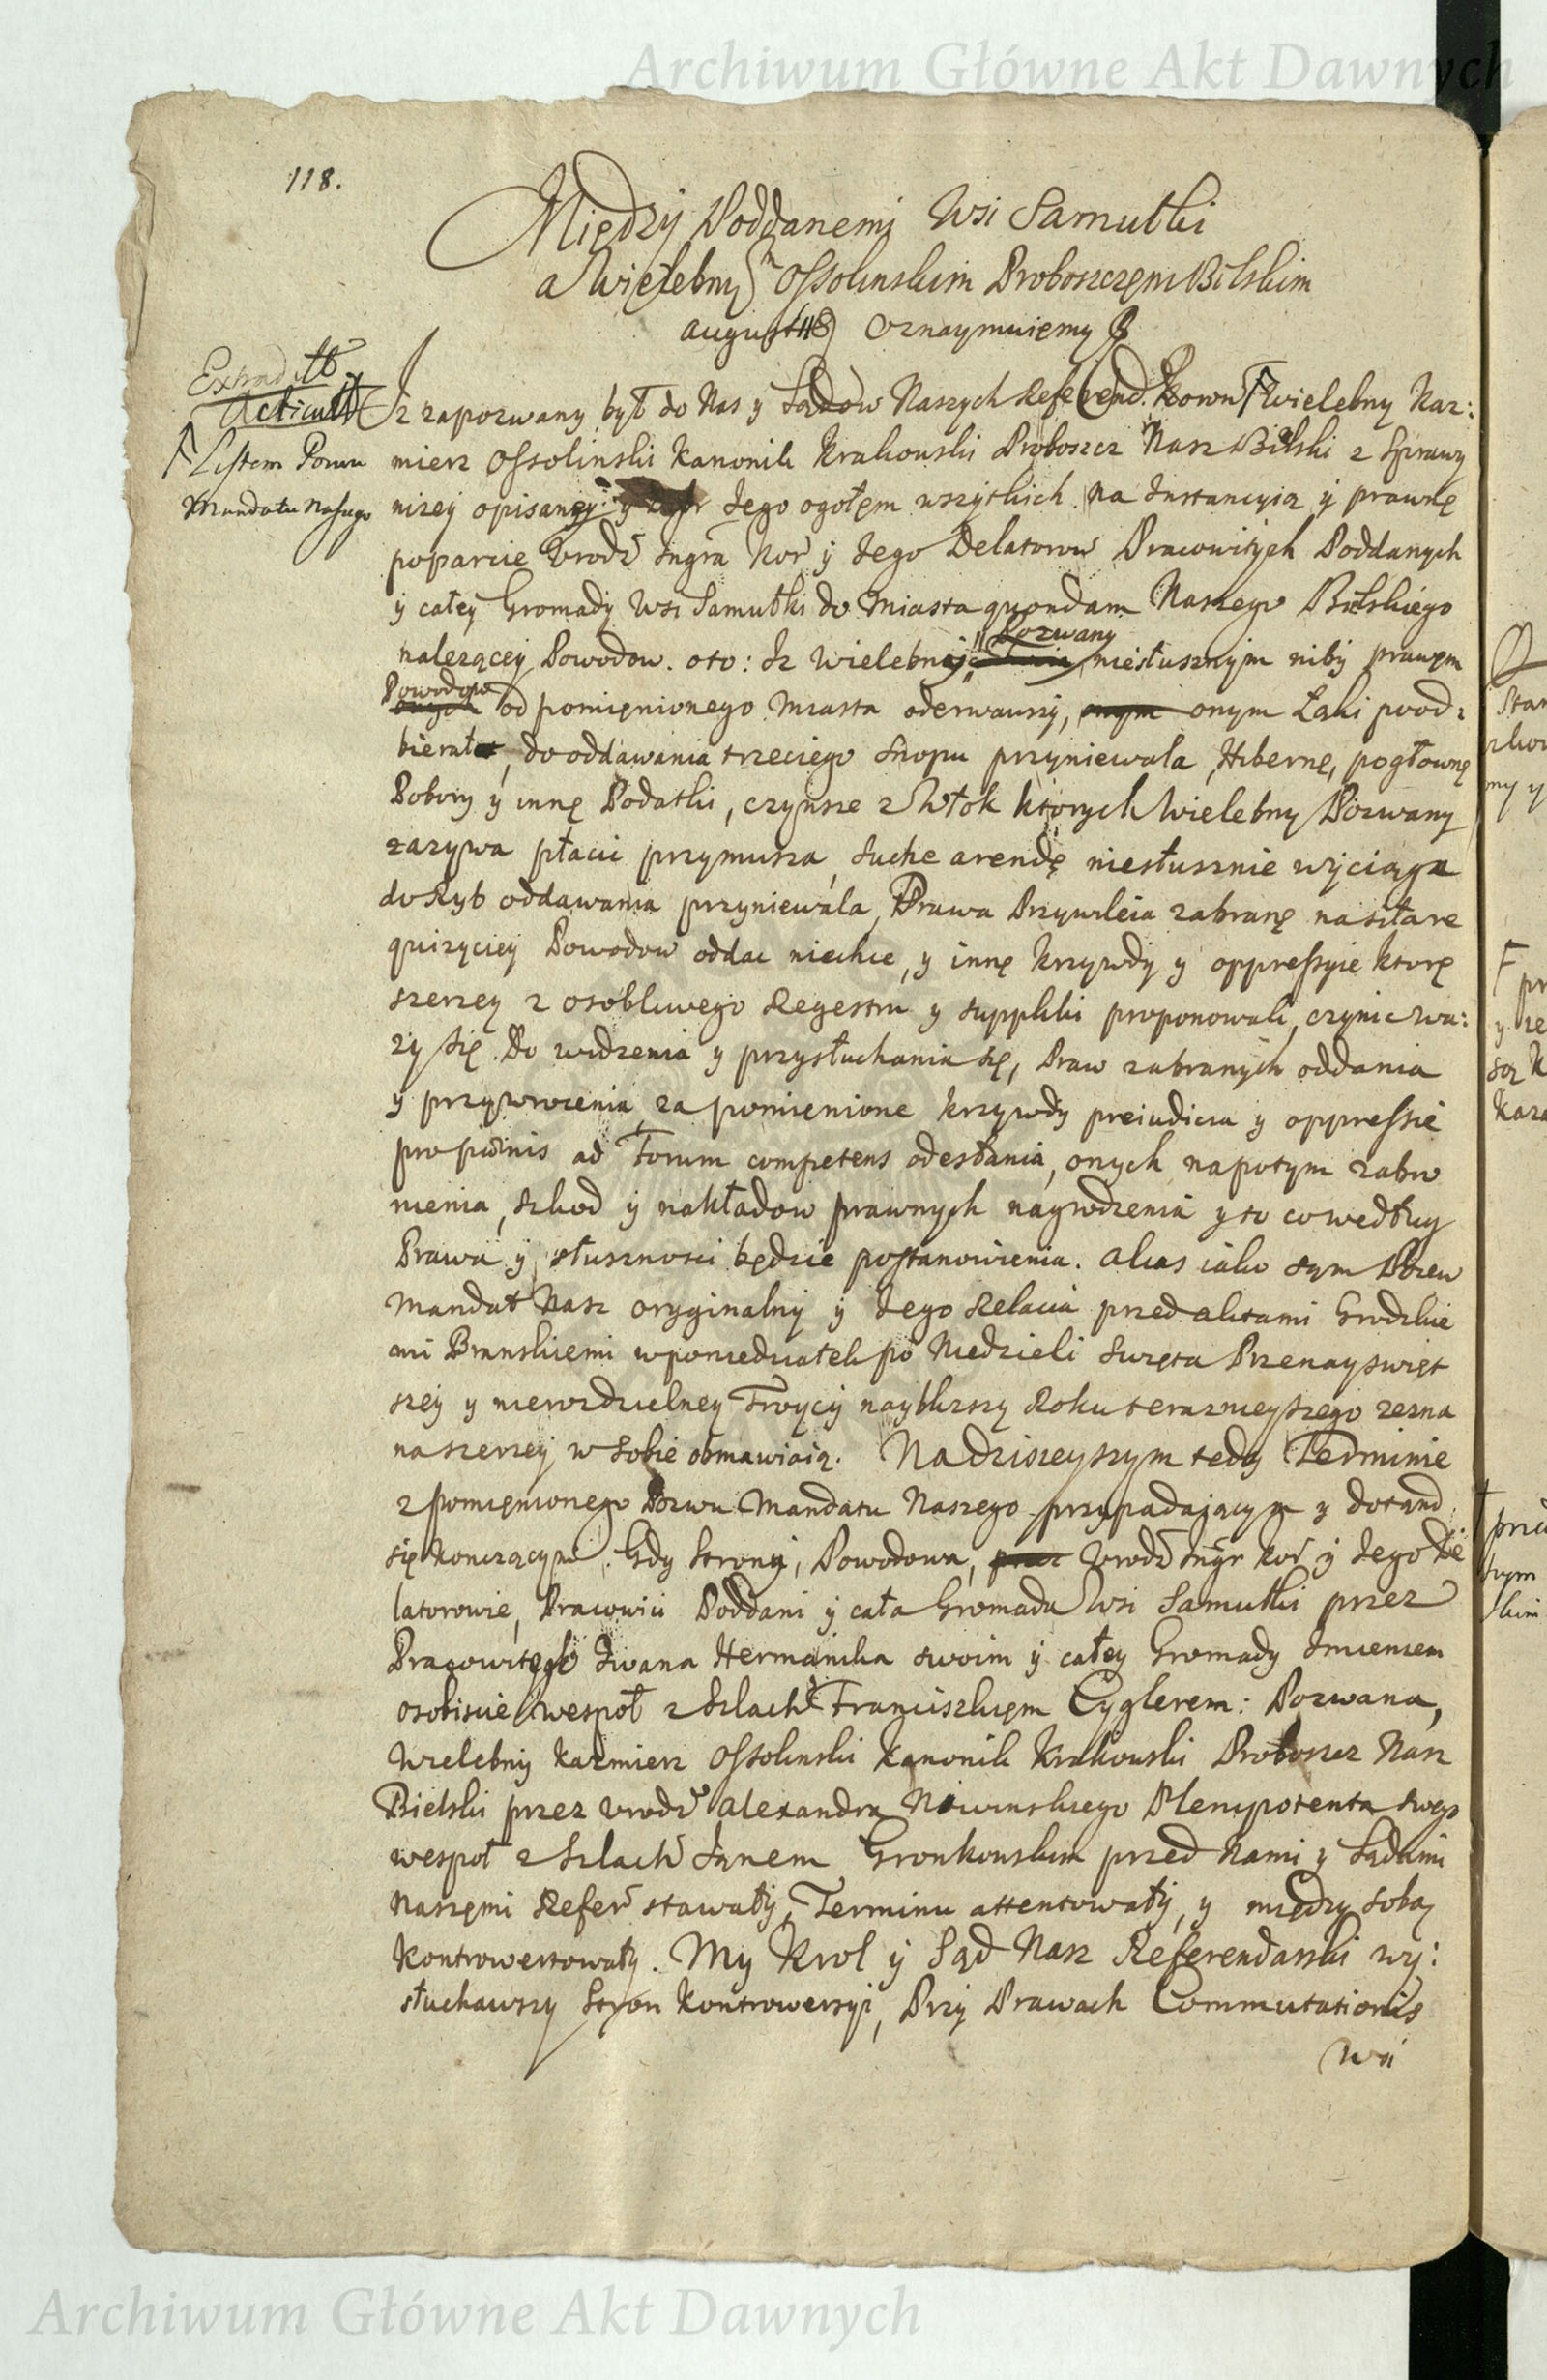 Archiwum Główne Akt Dawnych
118.
Między Poddanemi Wsi Samułki
a Wielebnym Ossolinskim Proboszczem Bilskim
August III Oznaymuięmy
Extradit
Acticatt
Listem Pozwu
Mandatu Naszego
Iz zapozwany był do Nas y Sądow Naszych Referend. Koron Wielebny Kaz:
mierz Ossolinski Kanonik Krakowski Proboszcz Nasz Bilski z Sprawy
nizey opisaney: y Jego ogołem wszytkich. Na Instancyią y prawnę
poparcie Urodz Ingra Kor y Jego Delatorow Pracowitych Poddanych
y całey Gromady Wsi Samułki do Miasta quondam Naszego Bielskiego
nalezącey Powodow. oto: Iz Wielebny Pozwany niesłusznym niby prawem
Powodow od pomięnionego Miasta oderwawszy, onym Łąki pood:
bierał, do oddawania trzeciego Snopu przyniewala, Hibernę, pogłownę
Pobory y innę Podatki, czynsze z Włok ktorych Wielebny Pozwany
zazywa płacic przymusza, Suche arendę niesłusznie wyciąga
do Ryb oddawania przyniewala, Prawa Przywileia zabranę na sztare
quizyciey Powodow oddac niechce, y innę krzywdy y oppressyie ktorę
szerzey z osobliwego Regestru y suppliki proponowali, czynic wa:
zy się. Do widzenia y przysłuchania się, Praw zabranych oddania
y przywrocenia, za pomienione krzywdy preiudicia y oppressie
pro pœnis ad Forum competens odesłania, onych napotym zabro
nienia, szkod y nakładow prawnych nagrodzenia y to co według
Prawa y słusznosci będzie postanowienia. alias iako sym Pozew
Mandat Nasz oryginalny y Jego Relacia przed aktami Grodzkie
mi Branskiemi w poniedziałek po Niedzieli Swięta Przenayswięt
szey y nierozdzielney Troycy nayblizszy Roku teraznieyszego zezna
na szerzey w Sobie obmawiaią. Na dziszeyszym tedy Terminie
z pomięnionego Pozwu Mandatu Naszego przypadaiącym y dotąnd
się konczącym. Gdy Strony, Powodowa, Urodz Ingr Kor y Jego De
latorowie, Pracowici Poddani y cała Gromada Wsi Samułki przez
Pracowitego Iwana Hermanika swoim y całey Gromady Imieniem
osobiscie wespoł z Szlach Franciszkięm Cyglerem: Pozwana,
Wielebny Kazmierz Ossolinski Kanonik Krakowski Proboszcz Nasz
Bielski przez Urodz Alexandra Nowinskiego Plenipotenta swego
wespoł z Szlach Janem Gronkowskim przed Nami y Sądami
Naszęmi Refer stawały, Terminu attentowały, y między sobą
kontrowertowały. My Krol y Sąd Nasz Referendarski wy:
słuchawszy Stron kontrowersyi, Przy Prawach Commutationis
Archiwum Główne Akt Dawnych